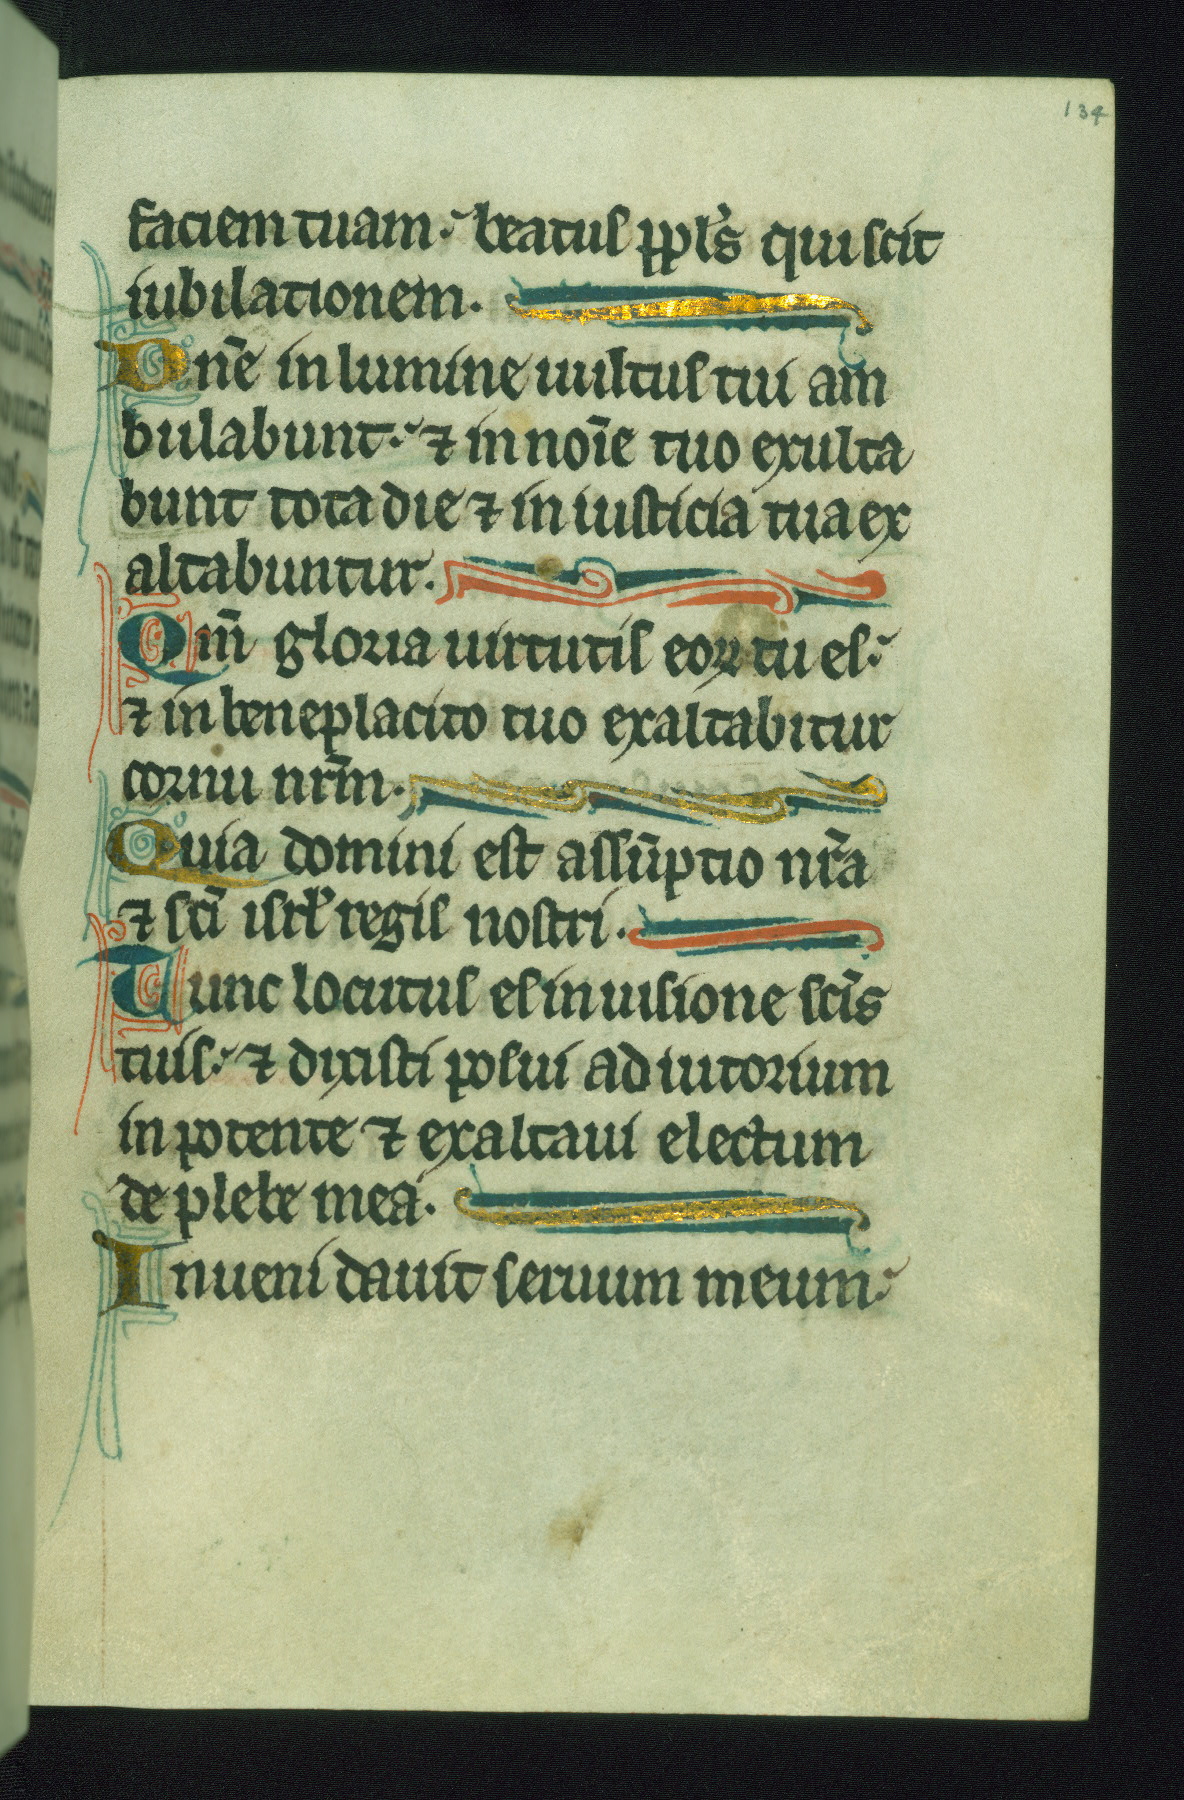 134
faciem tuam. beatus ppl's qui scit
iubilationem.
Dn̄e in lumine uultus tui am
bulabunt. ⁊ in noīe tuo exulta
bunt tota die ⁊ in iusticia tua ex
altabuntur.
Qm̄ gloria uirtutis eoꝝ tu es.
⁊ in beneplacito tuo exaltabitur
cornu nr̄m.
Quia domini est assūptio nr̄a
⁊ sc̄i isrl̄ regis nostri.
Tunc locutus es in uisione sc̄is
tuis. ⁊ dixisti posui adiutorium
in potente ⁊ exaltaui electum
de plebe mea.
Inueni dauit seruum meum.